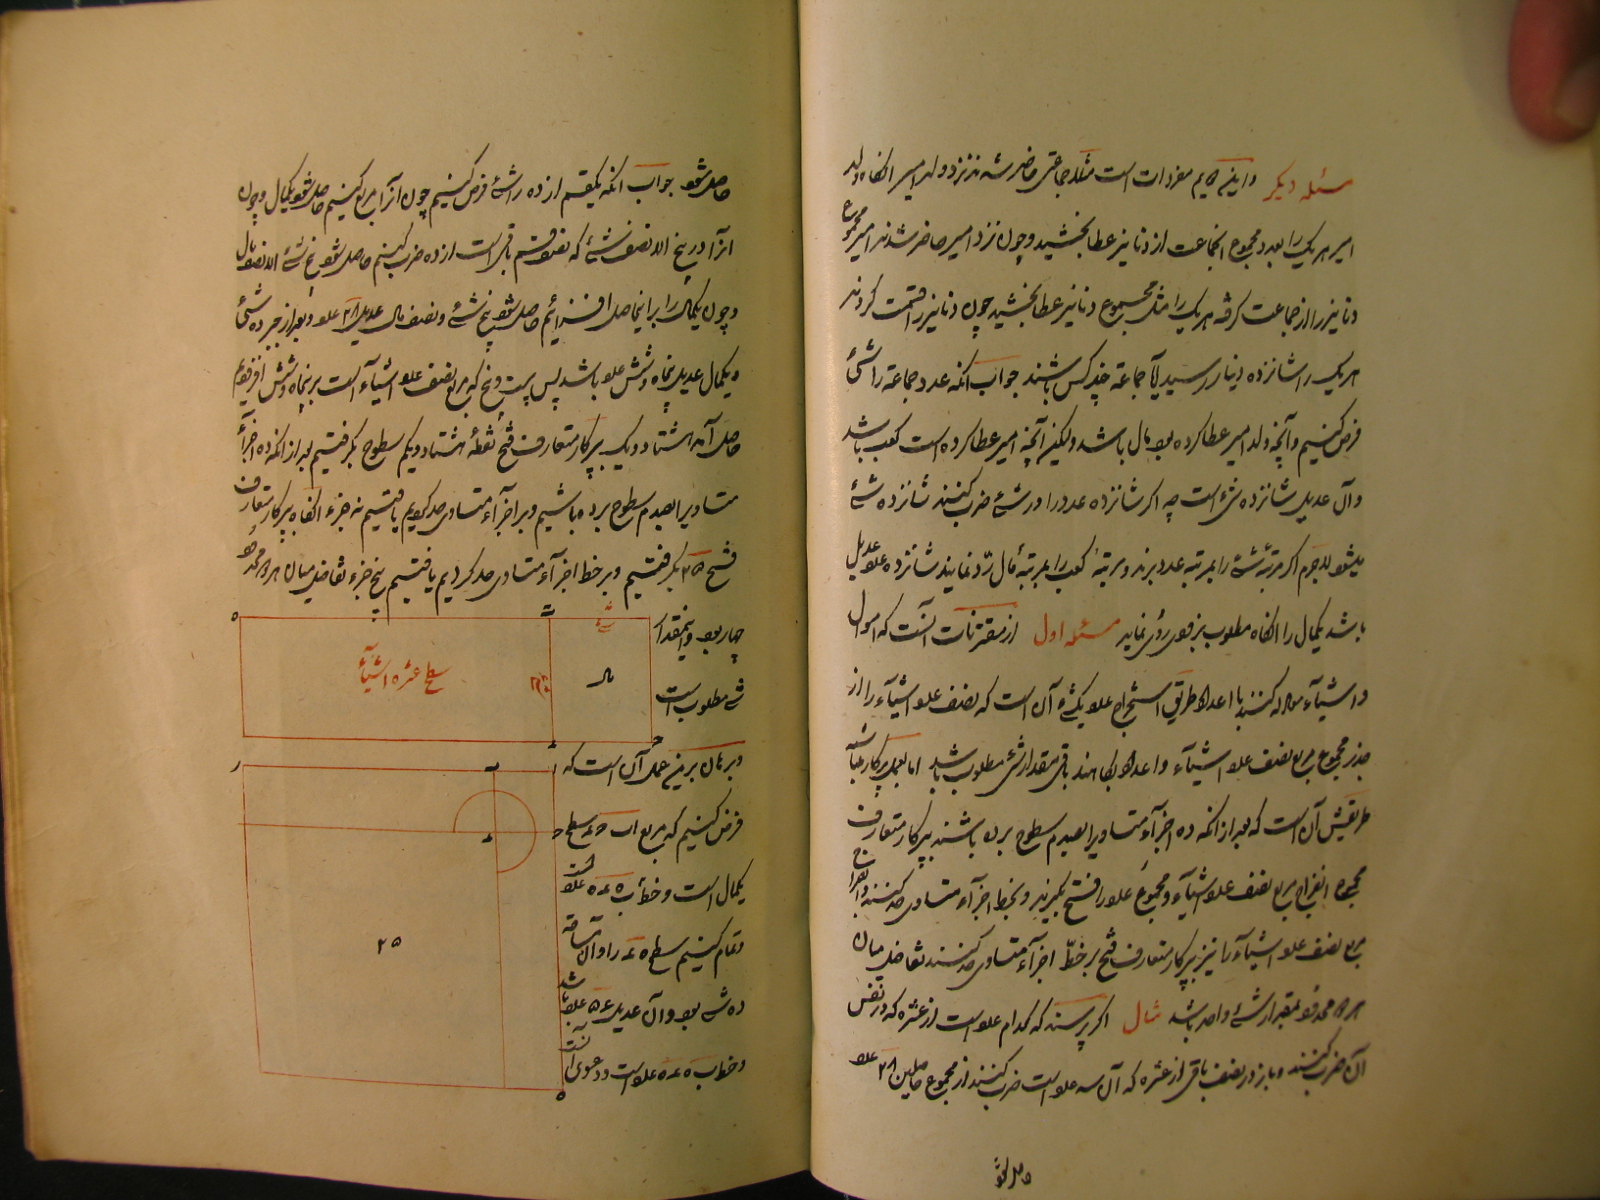 مسئله دیگر و این هم مفردات است مثلا جماعتی حاضر شدند نزد ولد امیر آنگاه ولد
امیر هر یک را بعدد مجموع آنجماعت از دنانیر عطا بخشید و چون نزد امیر حاضر شدند امیر مجموع
دنانیر را از جماعت گرفته هر یک را مثل مجموع دنانیر عطا بخشید چون دنانیر را قسمت کردند
هر یک را شانزده دینار رسید آیا جماعة چند کس باشند جواب آنکه عدد جماعة را شئ
فرض کنیم و آنچه ولد امیر عطا کرده بود مال باشد ولیکن آنچه امیر عطا کرده است کعب باشد
و آن عدیل شانزده شئ است چه اگر شانزده عدد را در شئ ضرب کنند شانزده شئ
میشود لاجرم اگر مرتبه شئ را بمرتبه عدد برند و مرتبه کعب را بمرتبه مال رد نمایند شانزده عدد عدیل
باشد یکمال را آنگاه مطلوب بزودی روی نماید مسئله اول از مقترنات آنست که اموال
و اشیاء معادله کنند با اعداد طریق استخراج عدد یکشئ آن است که نصف عدد اشیاء را از
جذر مجموع مربع نصف عدد اشیاء و اعداد بکاهند باقی مقدار شئ مطلوب باشد اما بعمل پرکار متناسبه
طریقش آن است که بعد از آنکه ده اجزآء متساویرا بصدم سطوح برده باشند بپرکار متعارف
مجموع مربع نصف عدد اشیاء و مجموع عدد را فتح بگیرند و بخط اجزآء متساوی حد کنند و انفراج
مربع نصف عدد اشیاء را نیز بپرکار متعارف فتح بر خط اجزآء متساوی حد کنند تفاضل میان
هر دو محدود بمقدار شئ واحد باشد مثال اگر پرسند که کدام عدد است از عشره که در نفس
آن ضرب کنند و باز در نصف باقی از عشره که آن سه عدد است ضرب کنند از مجموع حاصلین ۲۸ عدد
حاصل شود
حاصل شود جواب آنکه یکقسم از ده را شئ فرض کنیم چون آنرا مربع کنیم حاصل شود یکمال و چون
آنرا در پنج الا نصف شئ که نصف قسم باقی است از ده ضرب کنیم حاصل شود پنج شئ الا نصف مال
و چون یکمال را بر اینحاصل افزائیم حاصل شود پنج شئ و نصف مال عدیل ۲۸ عدد و بعد از جبر ده شئ
و یکمال عدیل پنجاه و شش عدد باشد پس بیست و پنج که مربع نصف عدد اشیاء است بر پنجاه و شش افزودیم
حاصل آمد هشتاد و یک بپرکار متعارف فتح نقطه هشتاد و یکم سطوح بگرفتیم بعد از آنکه ده اجزآء
متساویرا بصدم سطوح برده باشیم و بر اجزآء متساوی حد کردیم یافتیم نه جزء آنگاه بپرکار متعارف
فتح ۲۵ بگرفتیم و بر خط اجزآء متساوی حد کردیم یافتیم پنج جزء تفاضل میان هر دو محدود
چهار بود و اینمقدار
شئ مطلوب است
شئ
مال
سطح عشره اشیآء
و برهان بر این عمل آن است که
فرض کنیم که مربع اب حء سطح
یکمال است و خط ب ه ء ه عدد است
و تمام کنیم سطح ه ء را و آن
ده شئ بود و آن عدیل ۵۶ عدد باشد
و خط ب ه ء ه عدد است و دعوی آنست
۲۵